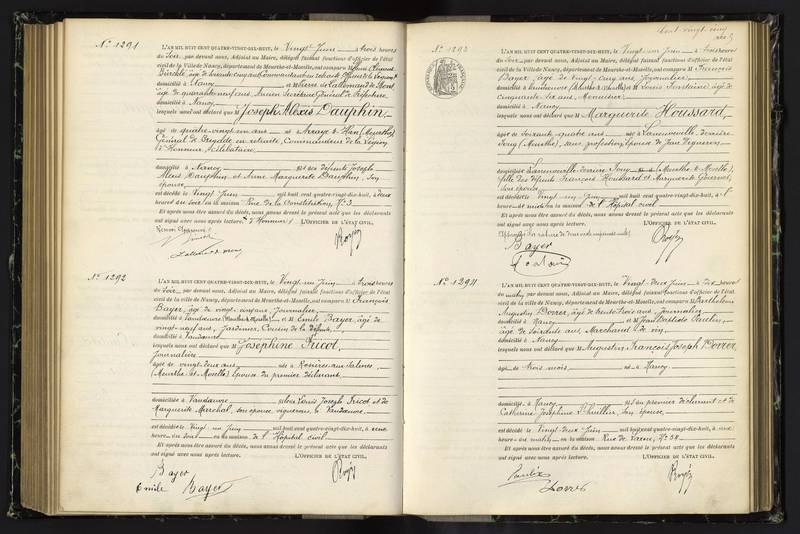 N° 1291
L'AN MIL HUIT CENT QUATRE-VINGT-DIX-HUIT, le Vingt Juin à trois heures
du Soir, par devant nous, Adjoint au Maire, délégué faisant fonctions d'officier de l'état
civil de la Ville de Nancy, département de Meurthe-et-Moselle, ont comparu
domicilié à Nancy
âgé de quarante neuf ans, Ancien Secrétaire Général de Préfecture,
domicilié à Nancy
lesquels nous ont déclaré que M Joseph Alexis Dauphin,
âgé de quatre-vingt-un ans né à Arraye & Han (Meurthe)
Général de Brigade en retraite, Commandeur de la Légion
d'Honneur, Célibataire
domicilié à Nancy est des défunts Joseph
Alexis Dauphin et Anne Marguerite Dauphin, son
épouse,
est décédé le Vingt Juin mil huit cent quatre-vingt-dix-huit, à deux
heures du soir en sa maison Rue de la Constitution, N° 3
Et après nous être assuré du décès, nous avons dressé le présent acte que les déclarants
ont signé avec nous après lecture. L'OFFICIER DE L'ÉTAT CIVIL,
N° 1292
L'AN MIL HUIT CENT QUATRE-VINGT-DIX-HUIT, le Vingt un Juin à trois heures
du Soir, par devant nous, Adjoint au Maire, délégué faisant fonctions d'officier de l'état
civil de la ville de Nancy, département de Meurthe-et-Moselle, ont comparu M François
Bayer, âgé de vingt cinq ans, Journalier,
domicilié à Vandoeuvre (Meurthe & Moselle) et M Emile Bayer, âgé de
vingt neuf ans, Jardinier, Cousin de la défunte,
domicilié à Vandoeuvre
lesquels nous ont déclaré que M Joséphine Fricot,
Journalière
âgée de vingt deux ans née à Rosières aux Salines
(Meurthe et Moselle) épouse du premier déclarant
domiciliée à Vandoeuvre Louis Joseph Fricot et de
Marguerite Marchal, son épouse, vignerons, à Vandoeuvre
est décédée le Vingt un Juin mil huit cent quatre-vingt-dix-huit, à une
heure du soir en sa maison de l'Hôpital civil
Et après nous être assuré du décès, nous avons dressé le présent acte que les déclarants
ont signé avec nous après lecture. L'OFFICIER DE L'ÉTAT CIVIL,
Bayer
Emile Bayer
Cent vingt cinq
N° 1293
L'AN MIL HUIT CENT QUATRE-VINGT-DIX-HUIT, le Vingt un Juin à trois heures
du Soir, par devant nous, Adjoint au Maire, délégué faisant fonctions d'officier de l'état
civil de la Ville de Nancy, département de Meurthe-et-Moselle, ont comparu M François
Bayer, âgé de vingt cinq ans, Journalier,
domicilié à Vandoeuvre (Meurthe & Moselle) et M Louis
Cinquante six ans, Menuisier
domicilié à Nancy
lesquels nous ont déclaré que M Marguerite Houssard,
âgée de Soixante quatre ans née à Laneuveville derrière
Foug (Meurthe), sans profession, épouse de Jean
domiciliée à Laneuveville derrière Foug (Meurthe & Moselle),
fille des défunts François Houssard et Marguerite
son épouse
est décédée le Vingt un Juin mil huit cent quatre-vingt-dix-huit, à
heure en sa maison de l'Hôpital civil
Et après nous être assuré du décès, nous avons dressé le présent acte que les déclarants
ont signé avec nous après lecture. L'OFFICIER DE L'ÉTAT CIVIL,
Bayer
N° 1294
L'AN MIL HUIT CENT QUATRE-VINGT-DIX-HUIT, le Vingt deux Juin à dix heures
du matin, par devant nous, Adjoint au Maire, délégué faisant fonctions d'officier de l'état
civil de la ville de Nancy, département de Meurthe-et-Moselle, ont comparu M Barthélemy
Augustin Dorrer, âgé de trente trois ans, Journalier
domicilié à Nancy et M Jean Baptiste Paulin,
âgé de soixante ans, Marchand de vin,
domicilié à Nancy
lesquels nous ont déclaré que M Augustin François Joseph Dorrer,
âgé de trois mois né à Nancy
domicilié à Nancy est du premier déclarant et de
Catherine Joséphine son épouse
est décédé le Vingt deux Juin mil huit cent quatre-vingt-dix-huit, à une
heure du matin, en sa maison Rue de N° 38
Et après nous être assuré du décès, nous avons dressé le présent acte que les déclarants
ont signé avec nous après lecture. L'OFFICIER DE L'ÉTAT CIVIL,
Paulin
Dorrer